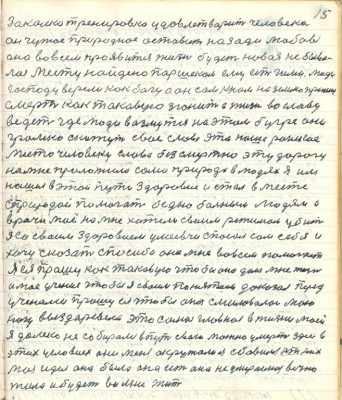 15
Закалка тренировка удовлетворит человека
он чужое природное оставит назади любовь
она во всем проявится жить будет новая не быва-
лая место найдено Паршеком ему гимн люди
господу верели как богу а он сам к нам на землю пришел
смерть как таковую згонит а жизнь во славу
ведет где люди возмутся на этом бугре они
громко скажут свое слово это наше раневое
место человеку слава безсмертно эту дорогу
на мне приложило сама природа в людях я им
нашел в этом пути здоровье и стал в месте
с природой помогать бедно больным людям а
врачи мое на мне хотели своим режимом убить
я со своим здоровьем умеючи спасал сам себя и
хочу сказать спасибо она мне во всем помогает
Я ее прошу как таковую чтобы она дала мне жизнь
и мое учение чтобы я своим понятием доказал перед
учеными прошу ее чтобы она смиловалась мою
ногу выздаровела это самая главная в жизни моей
Я далеко не собирался в путь свою можно умереть здесь в
этих условиях они меня окружали собаки
моя идея она была она есть она не умирающая вечно
жила и будет во мне жить